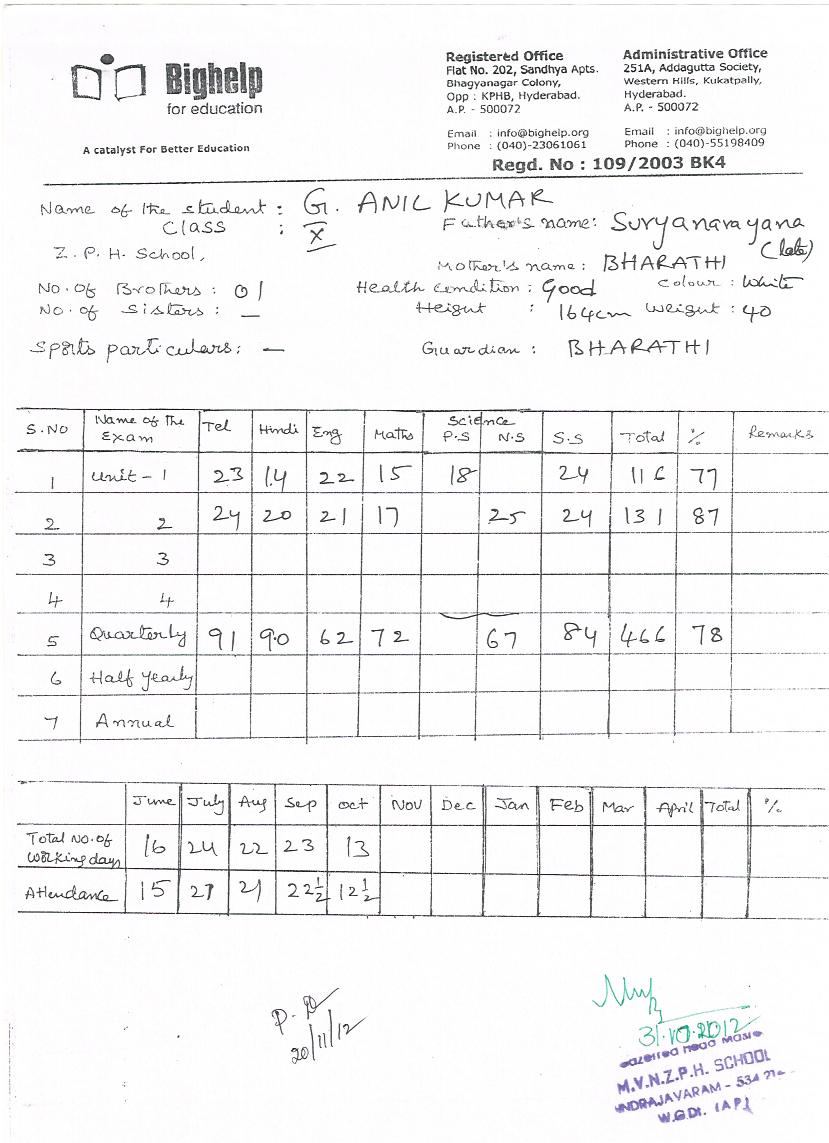 Bighelp
for education
A catalyst For Better Education
Registered Office
Flat No. 202, Sandhya Apts.
Bhagyanagar Colony,
Opp : KPHB, Hyderabad.
A.P. - 500072
Email : info@bighelp.org
Phone : (040)-23061061
Administrative Office
251A, Addagutta Society,
Western Hills, Kukatpally,
Hyderabad.
A.P. - 500072
Email : info@bighelp.org
Phone : (040)-55198409
Regd. No : 109/2003 BK4
Name of the student : G. ANIL KUMAR
Class : X
Father's name: Suryanarayana
(late)
Z. P. H. School,
Mother's name : BHARATHI
No. of Brothers : 01
Health condition : Good
Colour : White
No. of Sisters : —
Height : 164cm Weight : 40
Sports particulars: —
Guardian : BHARATHI
S.NO Name of the Exam Tel Hindi Eng Maths Science P.S N.S S.S Total % Remarks
1 Unit - 1 23 14 22 15 18 24 116 77
2 2 24 20 21 17 25 24 131 87
3 3
4 4
5 Quarterly 91 90 62 72 67 84 466 78
6 Half Yearly
7 Annual
June July Aug Sep Oct Nov Dec Jan Feb Mar April Total %
Total No. of working days 16 24 22 23 13
Attendance 15 21 22½ 12½
20/11/12
31.10.2012
M.V.N.Z.P.H. SCHOOL
W.G.Dt. (A.P)